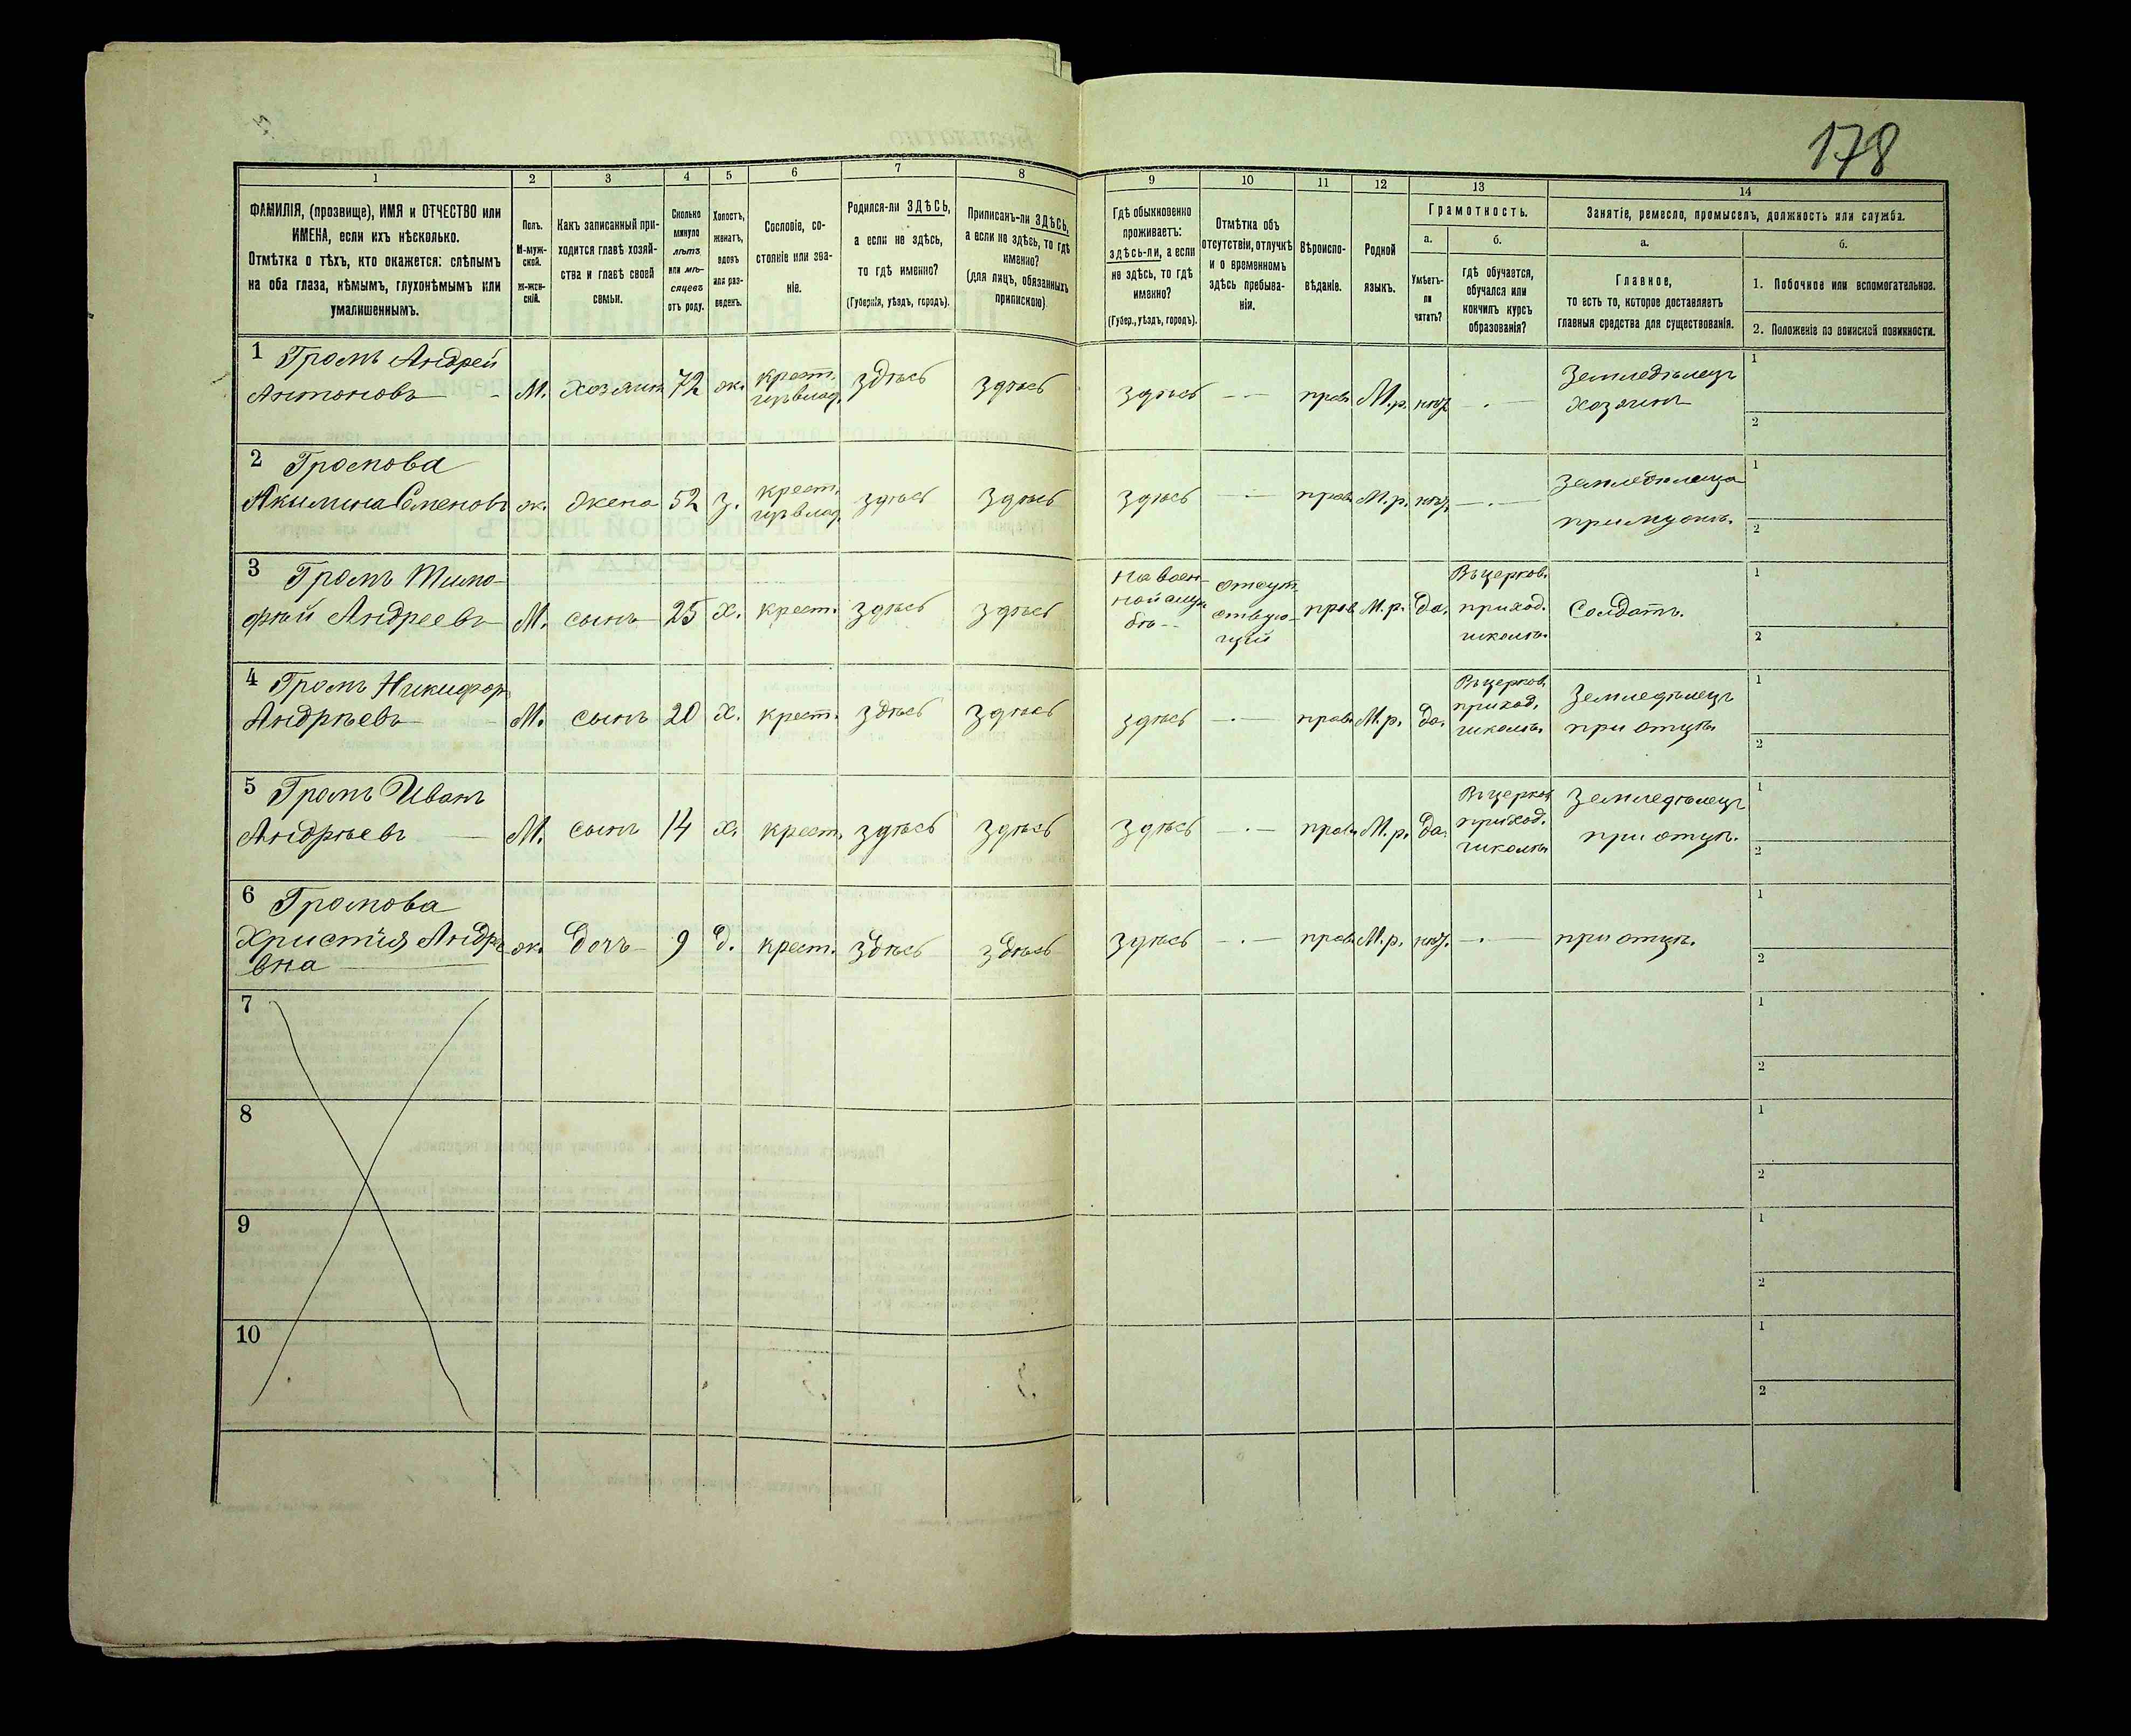 178
1
2
3
4
5
6
7
8
9
10
11
12
13
14
ФАМИЛІЯ, (прозвище), ИМЯ и ОТЧЕСТВО или
ИМЕНА, если ихъ нѣсколько.
Отмѣтка о тѣхъ, кто окажется: слѣпымъ
на оба глаза, нѣмымъ, глухонѣмымъ или
умалишеннымъ.
Полъ.
М-муж-
ской.
Ж-жен-
скій.
Какъ записанный при-
ходится главѣ хозяй-
ства и главѣ своей
семьи.
Сколько
минуло
лѣтъ
или мѣ-
сяцевъ
отъ роду.
Холостъ,
женатъ,
вдовъ
или раз-
веденъ.
Сословіе, со-
стояніе или зва-
ніе.
Родился-ли ЗДѢСЬ,
а если не здѣсь,
то гдѣ именно?
(Губернія, уѣздъ, городъ).
Приписанъ-ли ЗДѢСЬ,
а если не здѣсь, то гдѣ
именно?
(для лицъ, обязанныхъ
припискою)
Гдѣ обыкновенно
проживаетъ:
здѣсь-ли, а если
не здѣсь, то гдѣ
именно?
(Губер., уѣздъ, городъ).
Отмѣтка объ
отсутствіи, отлучкѣ
и о временномъ
здѣсь пребыва-
ніи.
Вѣроиспо-
вѣданіе.
Родной
языкъ.
Грамотность.
а.
б.
Умѣетъ-
ли
читать?
гдѣ обучается,
обучался или
кончилъ курсъ
образованія?
Занятіе, ремесло, промыселъ, должность или служба.
а.
б.
Главное,
то есть то, которое доставляетъ
главныя средства для существованія.
1. Побочное или вспомогательное.
2. Положеніе по воинской повинности.
1 Громъ Андрей
Антоновъ - М. хозяинъ 72 ж. крест. здѣсь здѣсь здѣсь — прав. М.р. нѣт — Земледѣлецъ
хозяинъ
1
2
2 Громова
Акилина Семенов ж. жена 52 з. крест. здѣсь здѣсь здѣсь — прав. М.р. нѣт — Земледѣлица
при мужѣ.
1
2
3 Громъ Тимо-
фѣй Андреевъ М. сынъ 25 х. крест. здѣсь здѣсь
На воен-
ной служ
бѣ --
отсут-
ствую-
щій
прав. М.р. да.
Въ церков.
приход.
школѣ.
Солдатъ.
1
2
4 Громъ Никифор
Андрѣевъ М. сынъ 20 х. крест. здѣсь здѣсь здѣсь — прав. М.р. да.
Въ церков.
приход.
школѣ.
Земледѣлецъ
при отцѣ.
1
2
5 Громъ Иванъ
Андрѣевъ — М. сынъ 14 х. крест. здѣсь здѣсь здѣсь — прав. М.р. да.
Въ церков.
приход.
школѣ.
Земледѣлецъ
при отцѣ.
1
2
6 Громова
Христія Андрѣ
вна ж. дочь 9 д. крест. здѣсь здѣсь здѣсь — прав. М.р. нѣт. — при отцѣ.
1
2
7
1
2
8
1
2
9
1
2
10
1
2